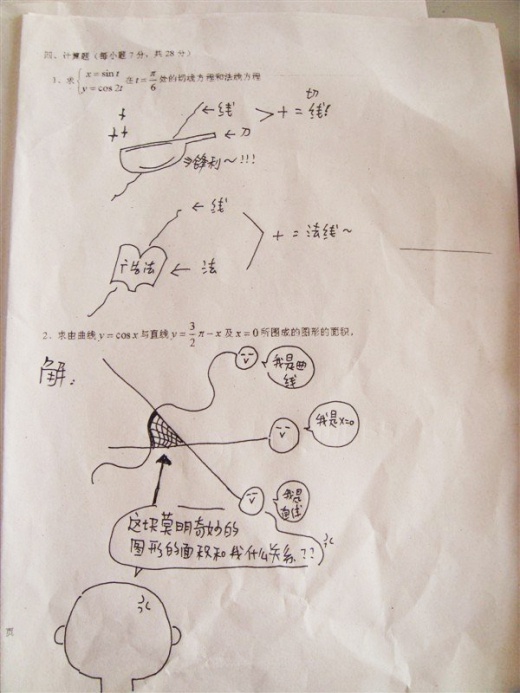 四、计算题（每小题7分，共28分）
1、求{x=sin t y=cos2t 在t=π/6处的切线方程和法线方程
←线
切
>+=线!
←刀
⇒锋利~!!!
←线
+=法线~
←法
2、求由曲线y=cosx与直线y=3/2π-x及x=0所围成的图形的面积。
解：
我是曲
线
我是x=0
我是
直线
这块莫明奇妙的
图形的面积和我什么关系??
页